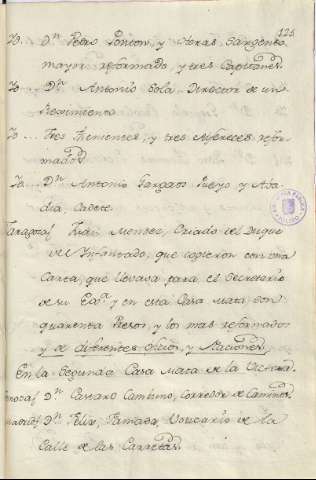 125
Yd. Dn Pedro Ponton, y Heras, Sargento
mayor reformado, y tres Capitanes.
Yd. Dn Antonio Sola Director de un
Regimiento
Yd. Tres Tenientes, y tres Alfereces refor-
mados
Yd. Dn Antonio Fargaos Pueyo, y Aba-
dia, Cadete.
Fran. Montes, Criado del Duque
del Infantado, que cogieron con una
Carta, que llevava para el Secretario
de su Exa. y en esta Casa Mata son
quarenta Presos, y los mas reformados
y de diferentes oficios, y Naciones,
En la Segunda Casa Mata de la
Dn Casaro Cambino, Corredor de Cambios
Dn Felix, Boticario de la
Calle de las Carretas.